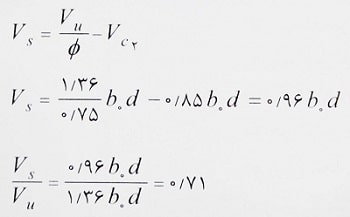 V_s = V_u / ϕ − V_c۲
V_s = ۱/۳۶ / ۰/۷۵ b₀ d − ۰/۸۵ b₀ d = ۰/۹۶ b₀ d
V_s / V_u = ۰/۹۶ b₀ d / ۱/۳۶ b₀ d = ۰/۷۱